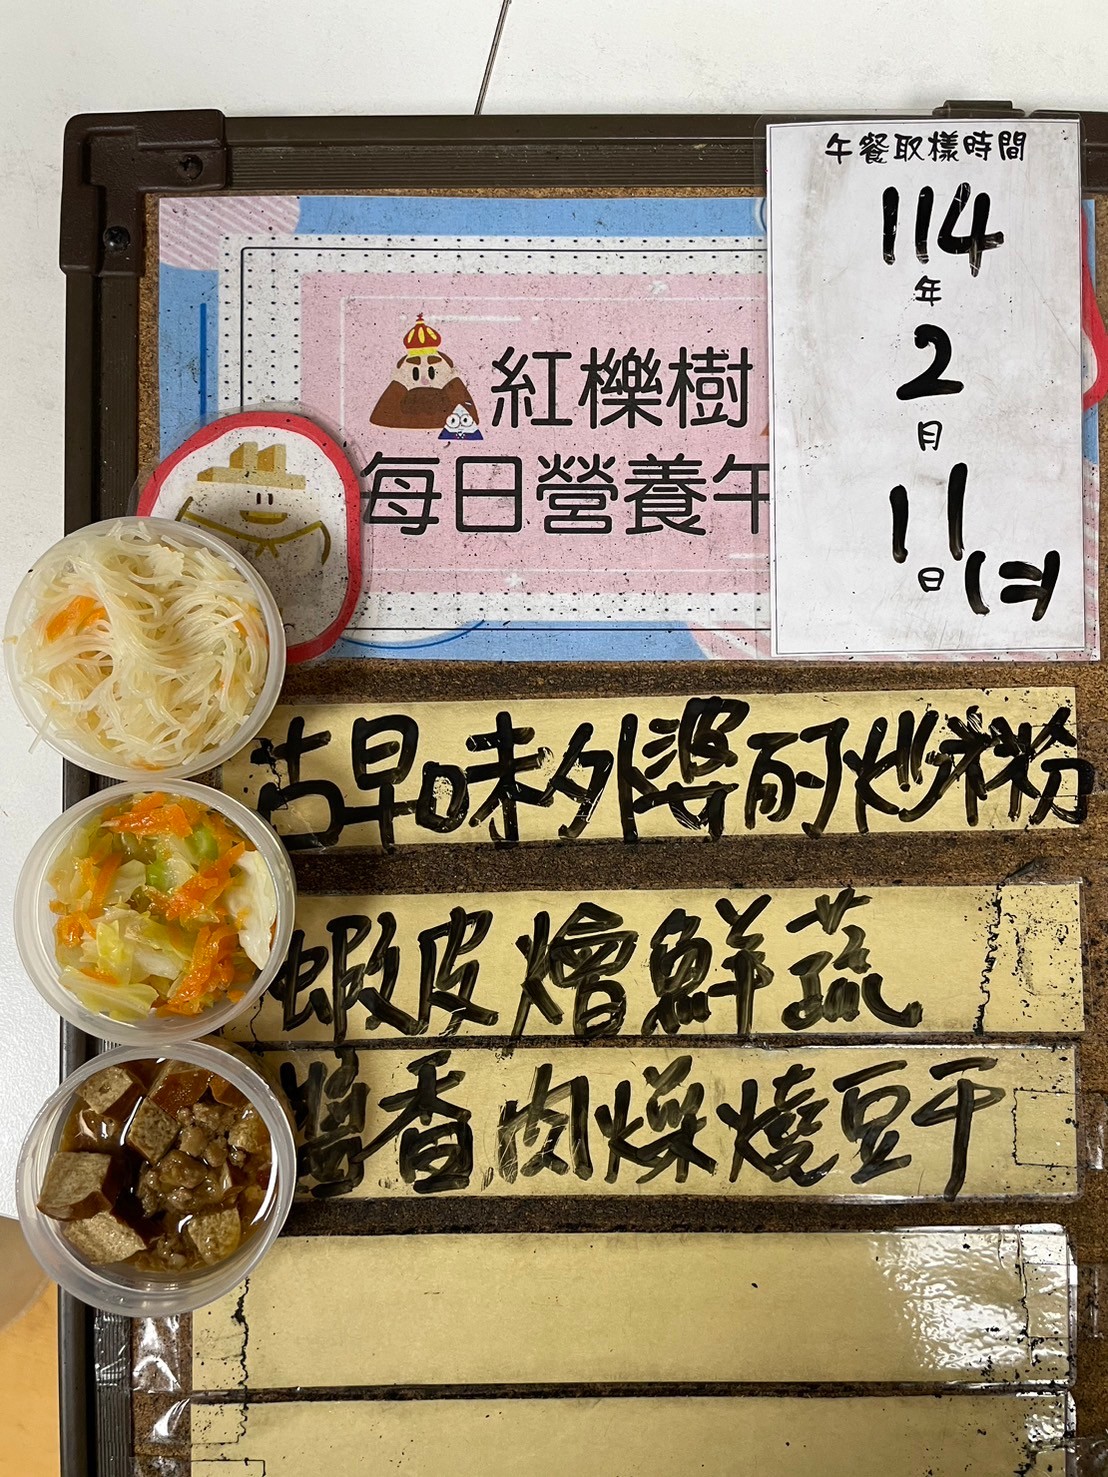 午餐取樣時間
114
年
2
月
11
日
紅櫟樹
每日營養午
古早味外婆ㄟ炒米粉
蝦皮燴鮮蔬
醬香肉燥燒豆干